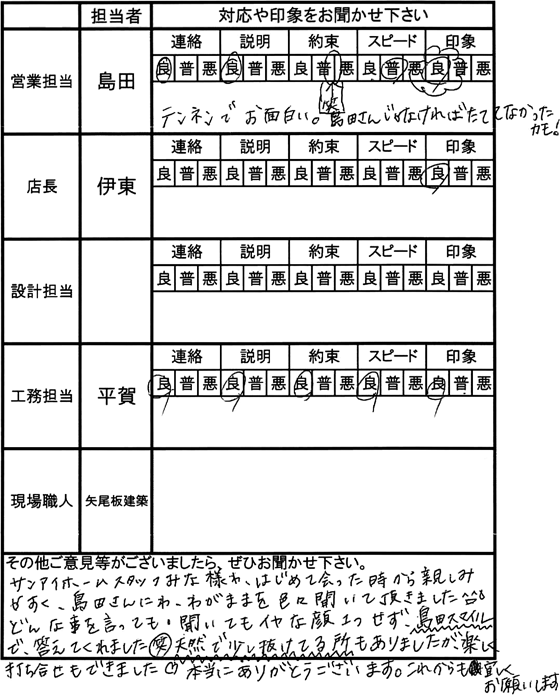 担当者 対応や印象をお聞かせ下さい
営業担当 島田 連絡 説明 約束 スピード 印象
良 普 悪 良 普 悪 良 普 悪 良 普 悪 良 普 悪
笑
テンネンで お面白い。島田さんじゃなければたててなかった
カモ!
店長 伊東 連絡 説明 約束 スピード 印象
良 普 悪 良 普 悪 良 普 悪 良 普 悪 良 普 悪
設計担当 連絡 説明 約束 スピード 印象
良 普 悪 良 普 悪 良 普 悪 良 普 悪 良 普 悪
工務担当 平賀 連絡 説明 約束 スピード 印象
良 普 悪 良 普 悪 良 普 悪 良 普 悪 良 普 悪
現場職人 矢尾板建築
その他ご意見等がございましたら、ぜひお聞かせ下さい。
サンアイホームスタッフみな様わ、はじめて会った時から親しみ
やすく、島田さんにわ、わがままを色々聞いて頂きました
どんな事を言っても・聞いてもイヤな顔1つせず、島田スマイル
で、答えてくれました 笑 天然で少し抜けてる所もありましたが、楽しく
打ち合せもできました 本当にありがとうございます。これからも宜しく
お願いします